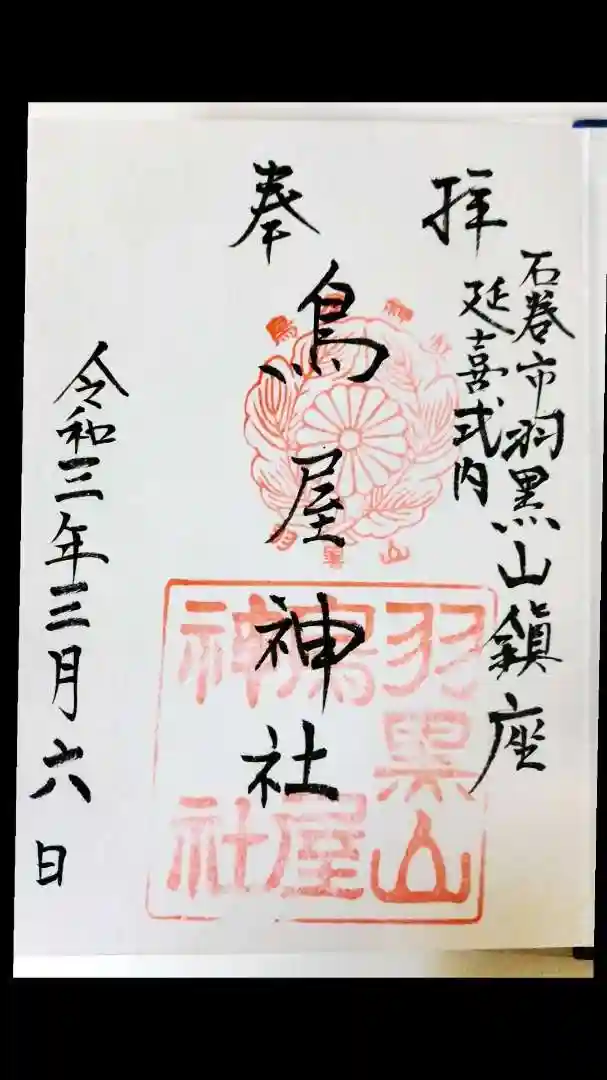 奉拝
石巻市羽黒山鎮座
延喜式内
鳥屋神社
令和三年三月六日
羽黒山
鳥屋
神社